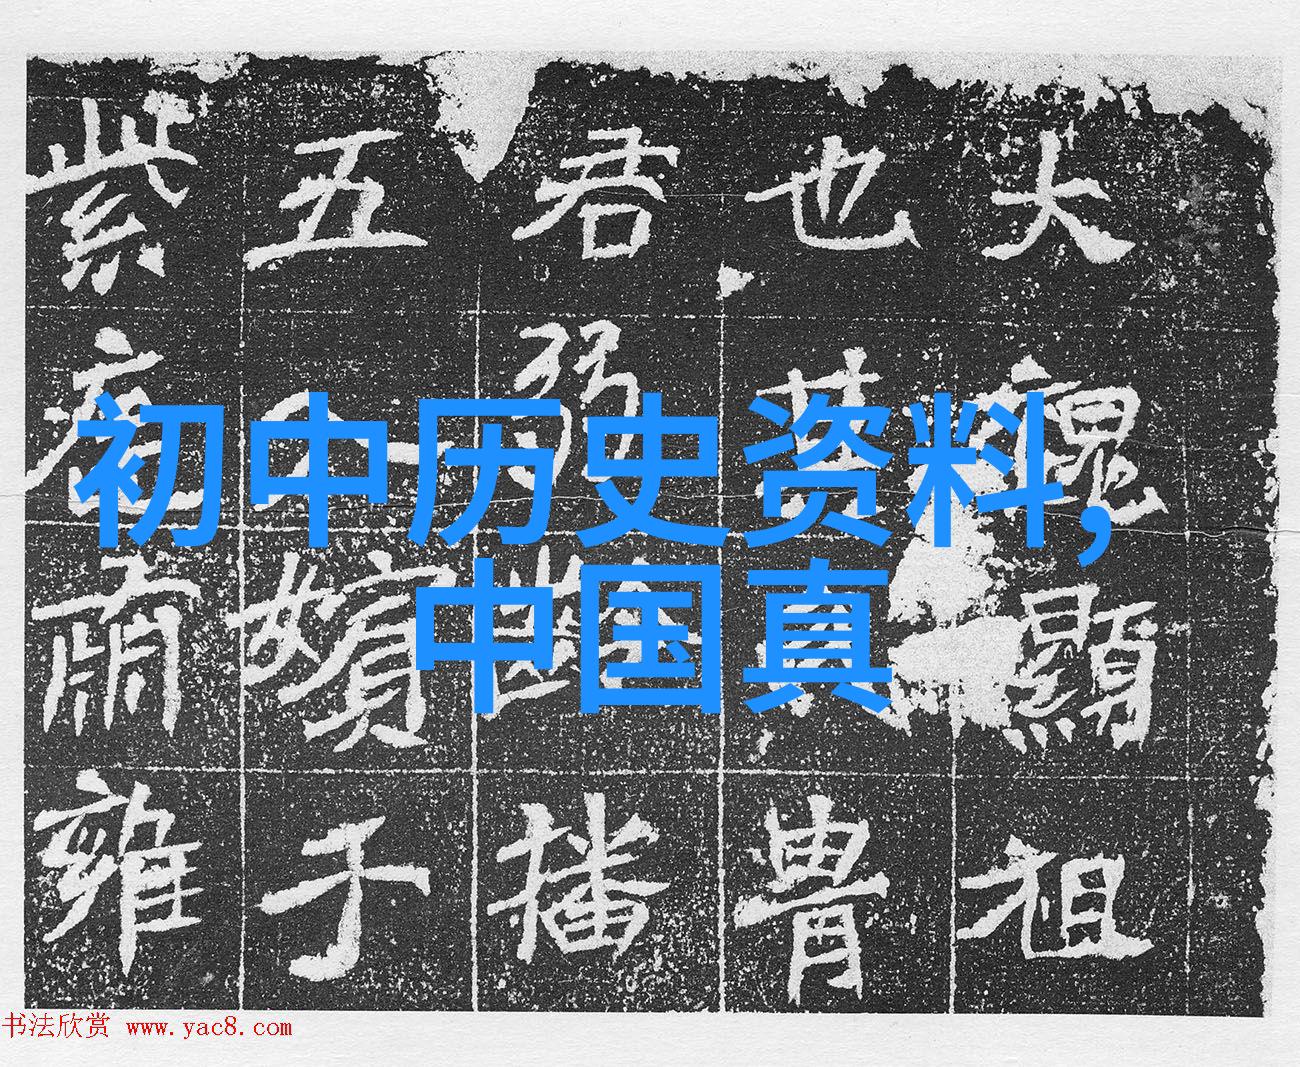 大魏顯祖
也胄
君弱齡播
五嬪于
紫庭肅雍
初中历史资料,
中国真
书法欣赏 www.yac8.com